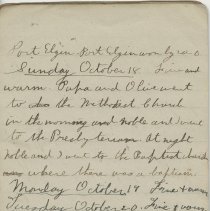 Port Elgin - Port Elgin won by 10-0
Sunday October 18. Fine and
warm. Papa and Olive went
to the Methodist Church
in the morning and noble and I went
to the Presbyterian. At night
noble and I went to the Baptist church
where there was a baptism.
Monday October 19 Fine & warm
Tuesday October 20. Fine & warm